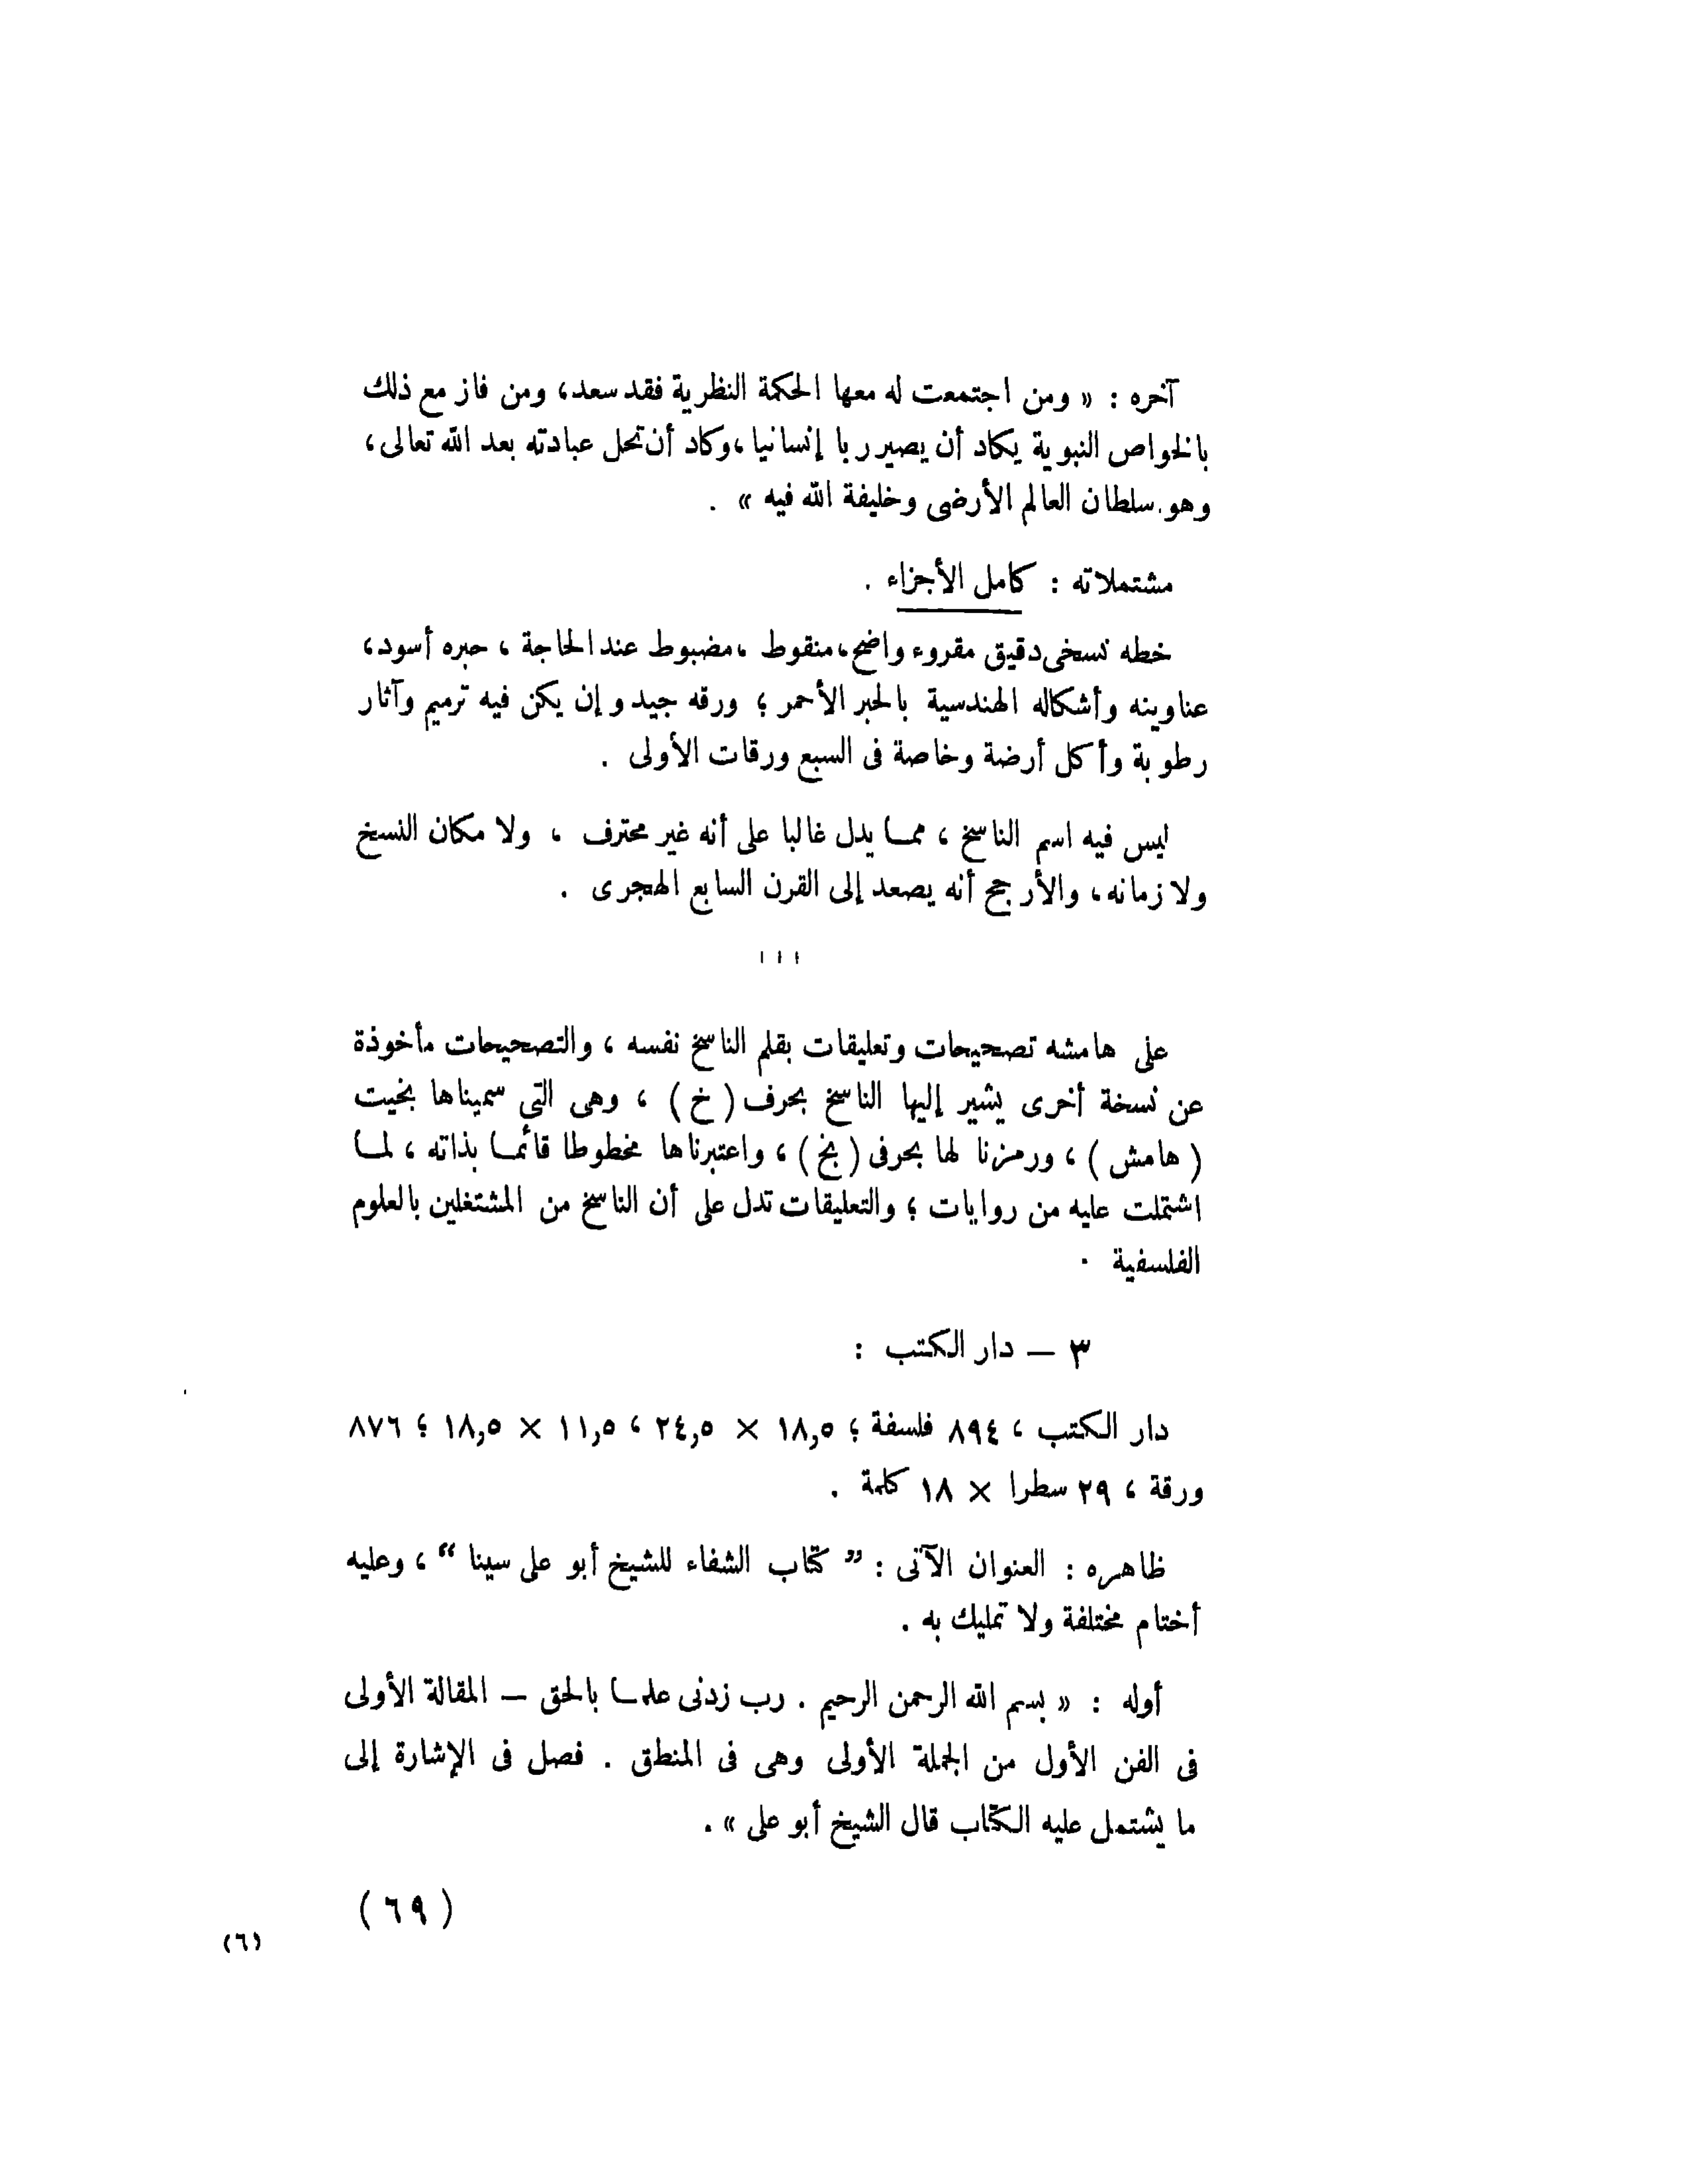 آخره : « ومن اجتمعت له معها الحكمة النظرية فقد سعد، ومن فاز مع ذلك
بالخواص النبوية يكاد أن يصير ربا إنسانيا ،وكاد أن تحل عبادته بعد الله تعالى،
وهو سلطان العالم الأرضى وخليفة الله فيه » .
مشتملاته : كامل الأجزاء .
خطه نسخى دقيق مقروء واضح، منقوط ،مضبوط عند الحاجة ، حبره أسود،
عناوينه وأشكاله الهندسية بالحبر الأحمر ؛ ورقه جيد وإن يكن فيه ترميم وآثار
رطوبة وأكل أرضة وخاصة فى السبع ورقات الأولى .
ليس فيه اسم الناسخ ، مما يدل غالبا على أنه غير محترف ، ولا مكان النسخ
ولا زمانه، والأرجح أنه يصعد إلى القرن السابع الهجرى .
على هامشه تصحيحات وتعليقات بقلم الناسخ نفسه ، والتصحيحات مأخوذة
عن نسخة أخرى يشير إليها الناسخ بحرف ( خ ) ، وهى التى سميناها بخيت
( هامش ) ، ورمزنا لها بحرفى ( بخ ) ، واعتبرناها مخطوطا قائما بذاته ، لما
اشتملت عليه من روايات ؛ والتعليقات تدل على أن الناسخ من المشتغلين بالعلوم
الفلسفية .
٣ — دار الكتب :
دار الكتب ، ٨٩٤ فلسفة ؛ ١٨,٥ × ٢٤,٥ ، ١١,٥ × ١٨,٥ ؛ ٨٧٦
ورقة ، ٢٩ سطرا × ١٨ كلمة .
ظاهره : العنوان الآتى : ” كتاب الشفاء للشيخ أبو على سينا “ ، وعليه
أختام مختلفة ولا تمليك به .
أوله : « بسم الله الرحمن الرحيم . رب زدنى علما بالحق — المقالة الأولى
فى الفن الأول من الجملة الأولى وهى فى المنطق . فصل فى الإشارة إلى
ما يشتمل عليه الكتاب قال الشيخ أبو على » .
( ٦٩ )
(٦)